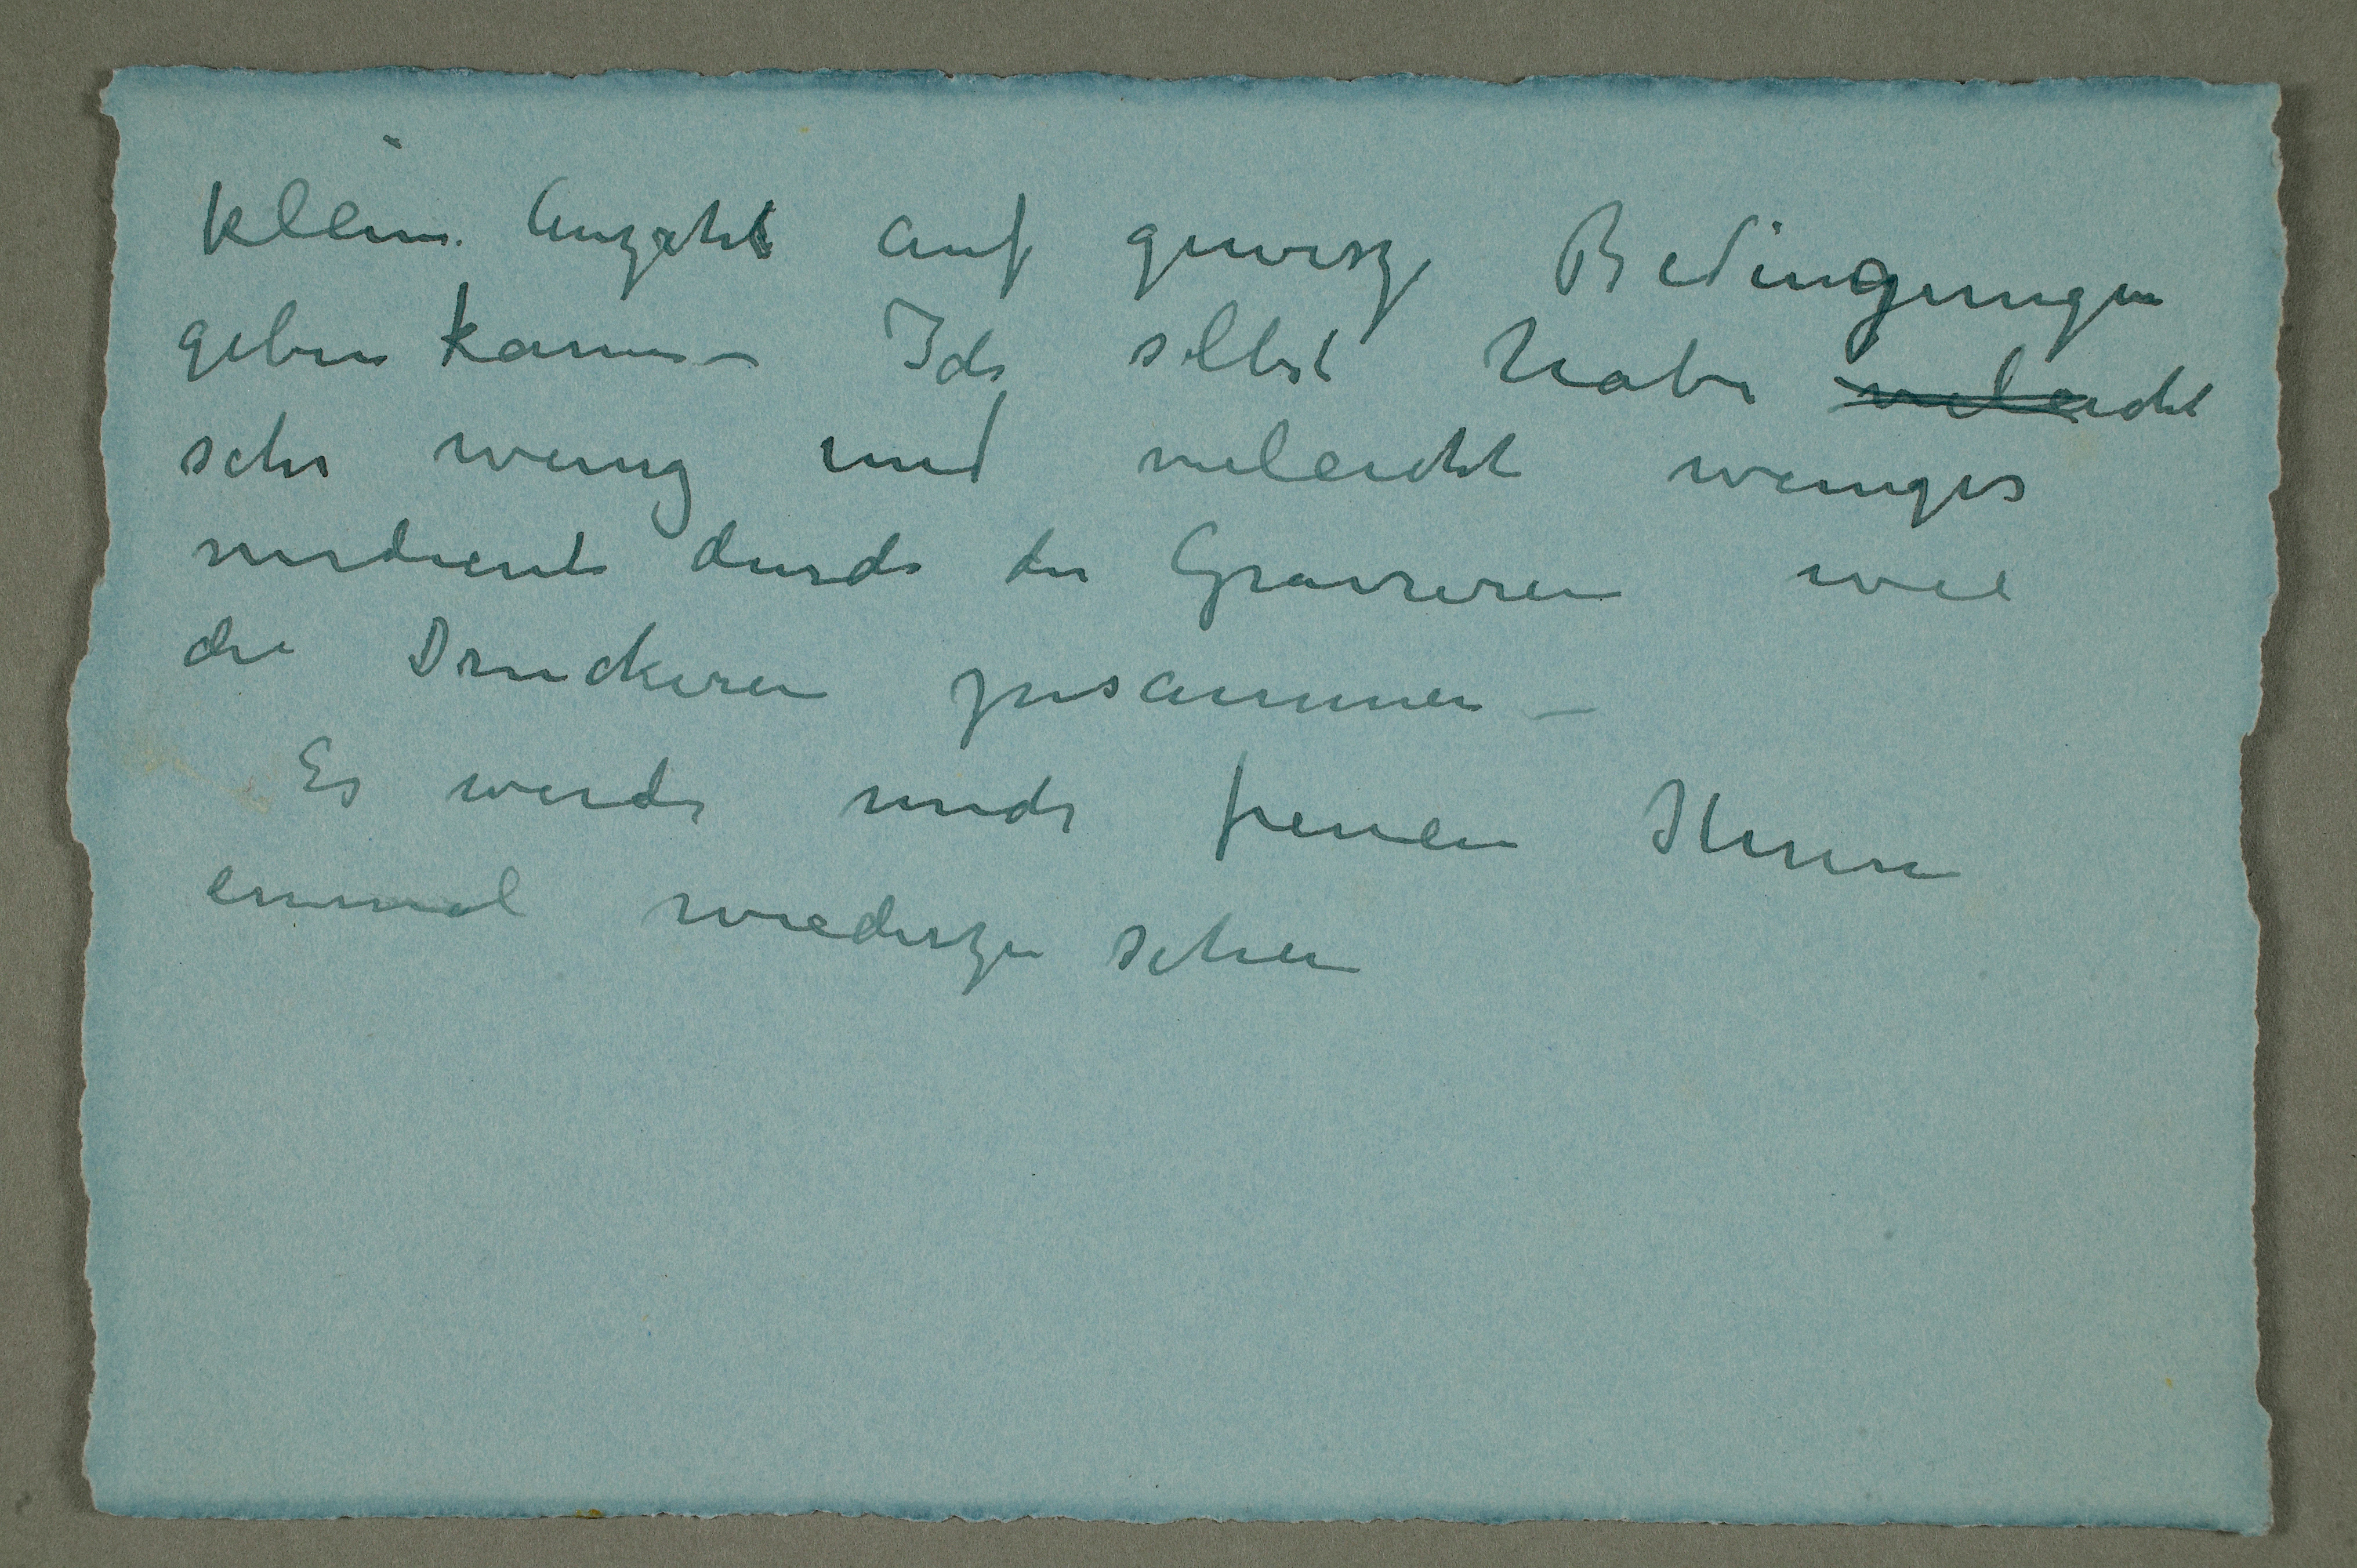 kleine Anzahl auf gewisze Bedingungen
geben kann – Ich selbst habe vieleicht
sehr wenig und vieleicht weniger
verdient durch die Gravieren wie
die Druckeren zusammen –
Es werde mich freuen Ihnen
einmal wiederzu sehen